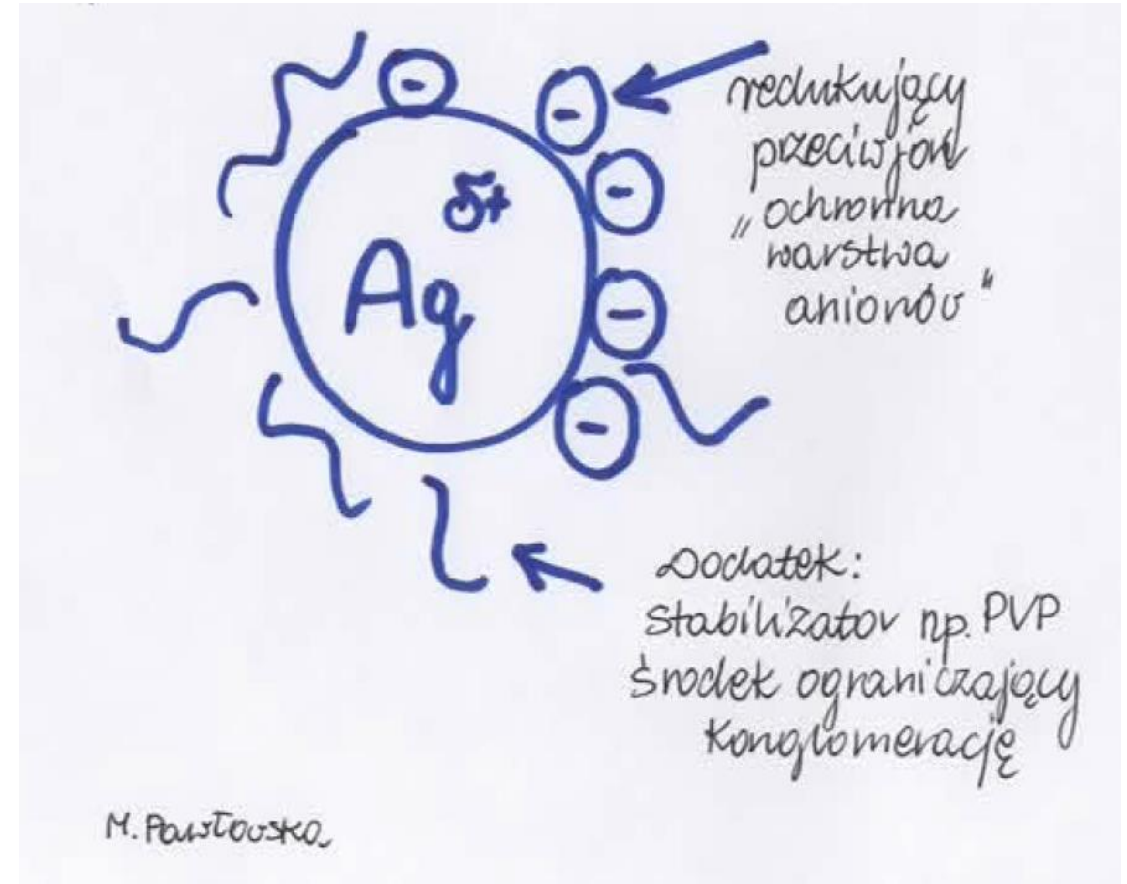 -
-
-
-
-
δ+
Ag
redukujący
przeciwjon
„ochronna
warstwa
anionów"
Dodatek:
stabilizator np. PVP
środek ograniczający
konglomerację
M. Pawłowska